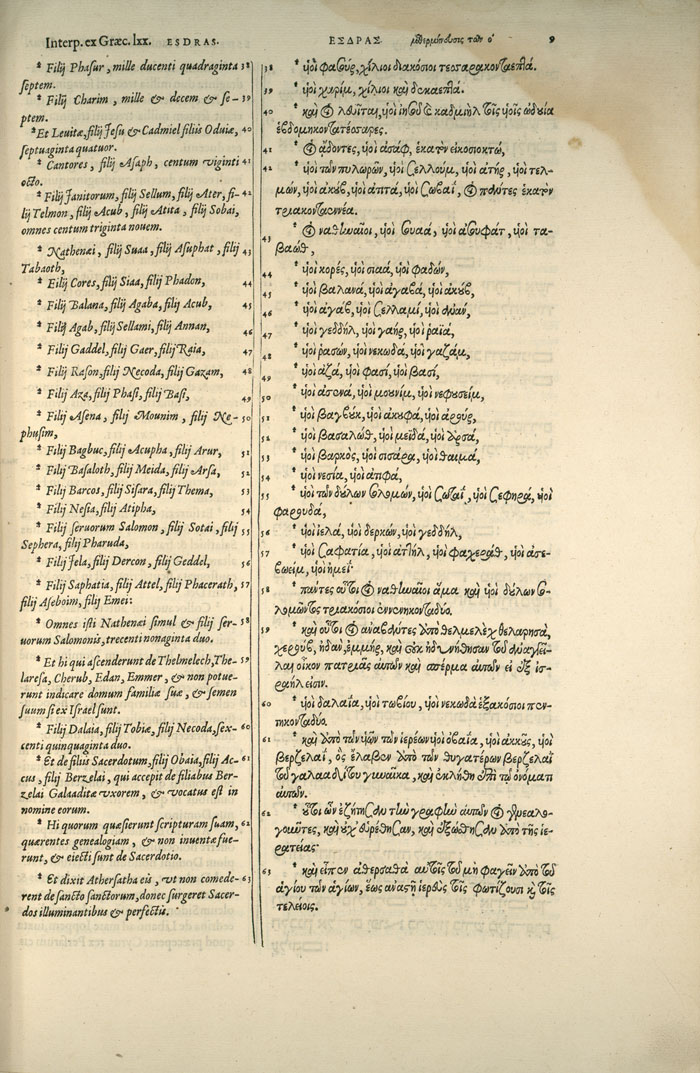 Interp. ex Græc. lxx. ESDRAS.
* Filij Phasur, mille ducenti quadraginta 38
septem.
* Filij Charim, mille & decem & se- 39
ptem.
* Et Leuitæ, filij Jesu & Cadmiel filiis Oduiæ, 40
septuaginta quatuor.
* Cantores, filij Asaph, centum viginti 41
octo.
* Filij Janitorum, filij Sellum, filij Ater, fi- 42
lij Telmon, filij Acub, filij Atita, filij Sobai,
omnes centum triginta nouem.
* Nathenæi, filij Suaa, filij Asuphat, filij 43
Tabaoth,
* Filij Cores, filij Siaa, filij Phadon, 44
* Filij Balana, filij Agaba, filij Acub, 45
* Filij Agab, filij Sellami, filij Annan, 46
* Filij Gaddel, filij Gaer, filij Raia, 47
* Filij Rason, filij Necoda, filij Gazam, 48
* Filij Aza, filij Phasi, filij Basi, 49
* Filij Asena, filij Mounim, filij Ne- 50
phusim,
* Filij Bagbuc, filij Acupha, filij Arur, 51
* Filij Basaloth, filij Meida, filij Arsa, 52
* Filij Barcos, filij Sisara, filij Thema, 53
* Filij Nesia, filij Atipha, 54
* Filij seruorum Salomon, filij Sotai, filij 55
Sephera, filij Pharuda,
* Filij Jela, filij Dercon, filij Geddel, 56
* Filij Saphatia, filij Attel, filij Phacerath, 57
filij Aseboim, filij Emei:
* Omnes isti Nathenæi simul & filij ser- 58
uorum Salomonis, trecenti nonaginta duo.
* Et hi qui ascenderunt de Thelmelech, The- 59
laresa, Cherub, Edan, Emmer, & non potue-
runt indicare domum familiæ suæ, & semen
suum si ex Israel sunt.
* Filij Dalaia, filij Tobiæ, filij Necoda, sex- 60
centi quinquaginta duo.
* Et de filiis Sacerdotum, filij Obaia, filij Ac- 61
cus, filij Berzelai, qui accepit de filiabus Ber-
zelai Galaaditæ vxorem, & vocatus est in
nomine eorum.
* Hi quorum quæsierunt scripturam suam, 62
quærentes genealogiam, & non inuentæ fue-
runt, & eiecti sunt de Sacerdotio.
* Et dixit Athersatha eis, vt non comede- 63
rent de sancto sanctorum, donec surgeret Sacer-
dos illuminantibus & perfectis.
ΕΣΔΡΑΣ μεθερμήνευσις τῶν ο΄ 9
38 * υἱοὶ φασούρ, χίλιοι διακόσιοι τεσσαρακονταεπτά.
39 * υἱοὶ χαρίμ, χίλιοι καὶ δεκαεπτά.
40 * καὶ οἱ λευῖται, υἱοὶ ἰησοῦ καὶ καδμιὴλ τοῖς υἱοῖς ὠδουΐα
ἑβδομηκοντατέσσαρες.
41 * οἱ ᾄδοντες, υἱοὶ ἀσάφ, ἑκατὸν εἰκοσιοκτώ,
42 * υἱοὶ τῶν πυλωρῶν, υἱοὶ σελλούμ, υἱοὶ ἀτήρ, υἱοὶ τελ-
μών, υἱοὶ ἀκούβ, υἱοὶ ἀτιτά, υἱοὶ σωβαΐ, οἱ πάντες ἑκατὸν
τριακονταεννέα.
43 * οἱ ναθιναῖοι, υἱοὶ σουαά, υἱοὶ ἀσουφάτ, υἱοὶ τα-
βαώθ,
44 * υἱοὶ κορές, υἱοὶ σιαά, υἱοὶ φαδών,
45 * υἱοὶ βαλανά, υἱοὶ ἀγαβά, υἱοὶ ἀκούβ,
46 * υἱοὶ ἀγάβ, υἱοὶ σελλαμί, υἱοὶ ἀνάν,
47 * υἱοὶ γεδδήλ, υἱοὶ γαήρ, υἱοὶ ῥαϊά,
48 * υἱοὶ ῥασών, υἱοὶ νεκωδά, υἱοὶ γαζάμ,
49 * υἱοὶ ἀζά, υἱοὶ φασί, υἱοὶ βασί,
50 * υἱοὶ ἀσενά, υἱοὶ μουνίμ, υἱοὶ νεφουσείμ,
51 * υἱοὶ βαγβούκ, υἱοὶ ἀκουφά, υἱοὶ ἀρούρ,
52 * υἱοὶ βασαλώθ, υἱοὶ μειδά, υἱοὶ ἀρσά,
53 * υἱοὶ βαρκός, υἱοὶ σισάρα, υἱοὶ θαιμά,
54 * υἱοὶ νεσιά, υἱοὶ ἀτιφά,
55 * υἱοὶ τῶν δούλων σολομών, υἱοὶ σωταΐ, υἱοὶ σεφηρά, υἱοὶ
φαρουδά,
56 * υἱοὶ ἰελά, υἱοὶ δερκών, υἱοὶ γεδδήλ,
57 * υἱοὶ σαφατία, υἱοὶ ἀττήλ, υἱοὶ φαχεράθ, υἱοὶ ἀσε-
βωείμ, υἱοὶ ἠμεΐ·
58 * πάντες οὗτοι οἱ ναθιναῖοι ἅμα καὶ υἱοὶ δούλων σο-
λομῶντος τριακόσιοι ἐννενηκονταδύο.
59 * καὶ οὗτοι οἱ ἀναβάντες ἀπὸ θελμελὲχ θελαρησά,
χερούβ, ἠδάν, ἐμμήρ, καὶ οὐκ ἠδυνήθησαν τοῦ ἀναγγεῖ-
λαι οἶκον πατριᾶς αὐτῶν καὶ σπέρμα αὐτῶν εἰ ἐξ ἰσ-
ραήλ εἰσιν.
60 * υἱοὶ δαλαΐα, υἱοὶ τωβίου, υἱοὶ νεκωδὰ ἑξακόσιοι πεν-
τηκονταδύο.
61 * καὶ ἀπὸ τῶν υἱῶν τῶν ἱερέων υἱοὶ ὀβαΐα, υἱοὶ ἀκκούς, υἱοὶ
βερζελαΐ, ὃς ἔλαβεν ἀπὸ τῶν θυγατέρων βερζελαῒ
τοῦ γαλααδίτου γυναῖκα, καὶ ἐκλήθη ἐπὶ τῷ ὀνόματι
αὐτῶν.
62 * οὗτοι ὧν ἐζήτησαν τὴν γραφὴν αὐτῶν οἱ γενεαλο-
γοῦντες, καὶ οὐχ εὑρέθησαν, καὶ ἐξώσθησαν ἀπὸ τῆς ἱε-
ρατείας·
63 * καὶ εἶπεν ἀθερσαθὰ αὐτοῖς τοῦ μὴ φαγεῖν ἀπὸ τοῦ
ἁγίου τῶν ἁγίων, ἕως ἀναστῇ ἱερεὺς τοῖς φωτίζουσι καὶ τοῖς
τελείοις.